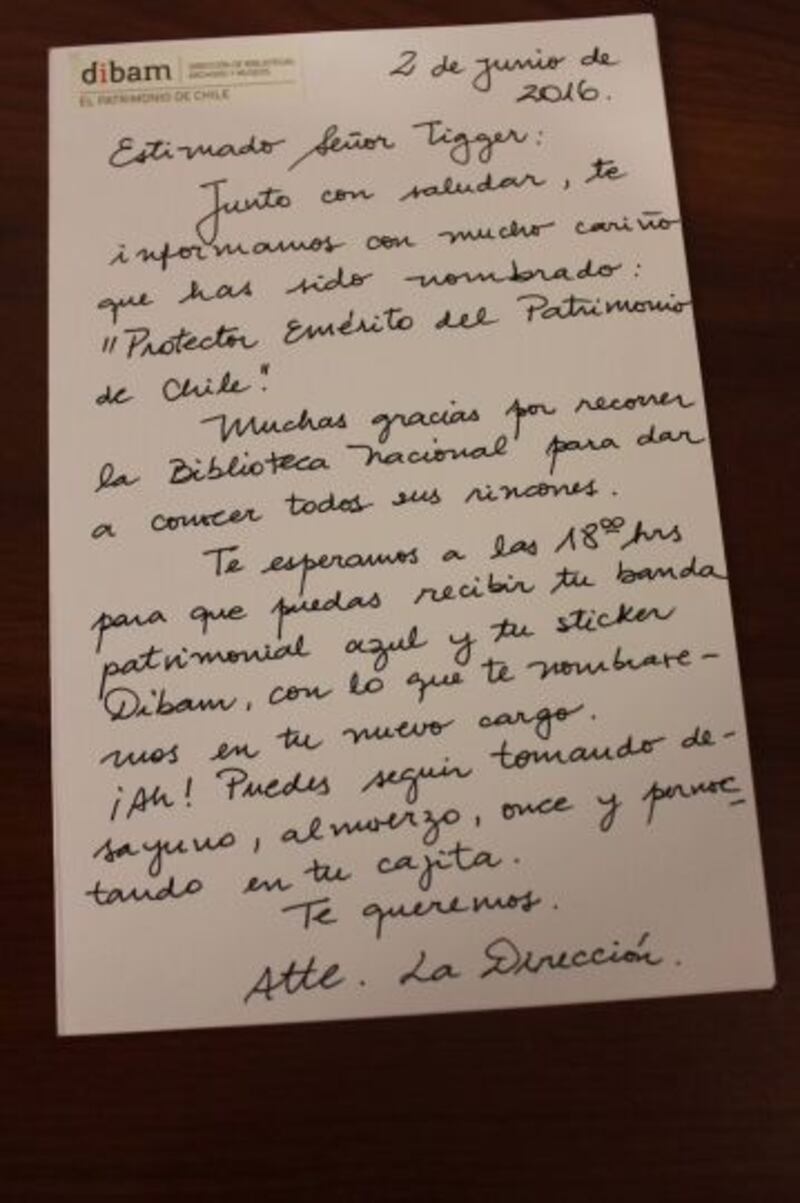 dibam
DIRECCIÓN DE BIBLIOTECAS
ARCHIVOS Y MUSEOS
EL PATRIMONIO DE CHILE
2 de junio de
2016.
Estimado Señor Tigger:
Junto con saludar, te
informamos con mucho cariño
que has sido nombrado:
"Protector Emérito del Patrimonio
de Chile".
Muchas gracias por recorrer
la Biblioteca Nacional para dar
a conocer todos sus rincones.
Te esperamos a las 18⁰⁰ hrs
para que puedas recibir tu banda
patrimonial azul y tu sticker
Dibam, con lo que te nombrare-
mos en tu nuevo cargo.
¡Ah! Puedes seguir tomando de-
sayuno, almuerzo, once y pernoc-
tando en tu cajita.
Te queremos.
Atte. La Dirección.